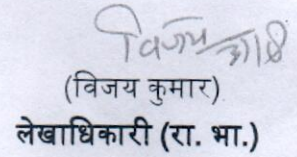 विजय
(विजय कुमार)
लेखाधिकारी (रा. भा.)